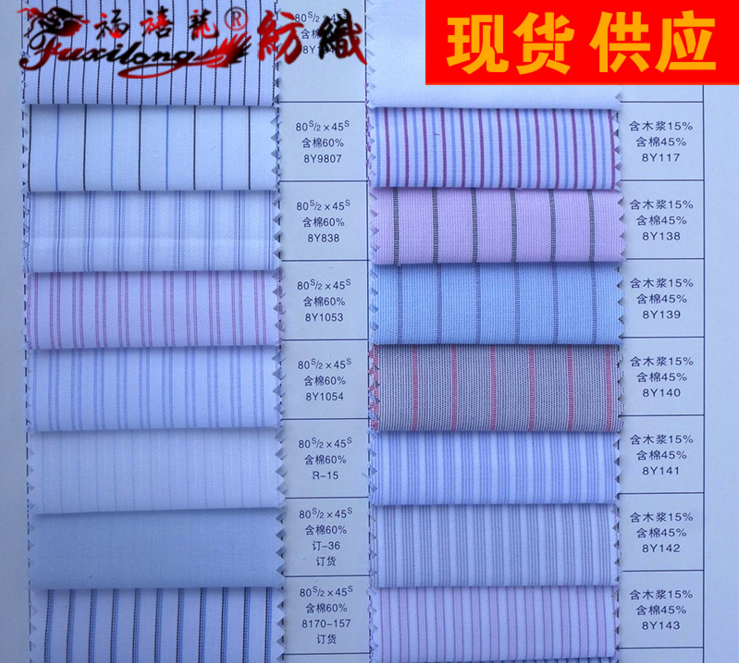 福禧龍®紡織
Fuxilong
现货 供应
80S/2×45S
含棉60%
80S/2×45S
含棉60%
8Y9807
80S/2×45S
含棉60%
8Y838
80S/2×45S
含棉60%
8Y1053
80S/2×45S
含棉60%
8Y1054
80S/2×45S
含棉60%
R-15
80S/2×45S
含棉60%
订-36
订货
80S/2×45S
含棉60%
8170-157
订货
含木浆15%
含棉45%
8Y117
含木浆15%
含棉45%
8Y138
含木浆15%
含棉45%
8Y139
含木浆15%
含棉45%
8Y140
含木浆15%
含棉45%
8Y141
含木浆15%
含棉45%
8Y142
含木浆15%
含棉45%
8Y143